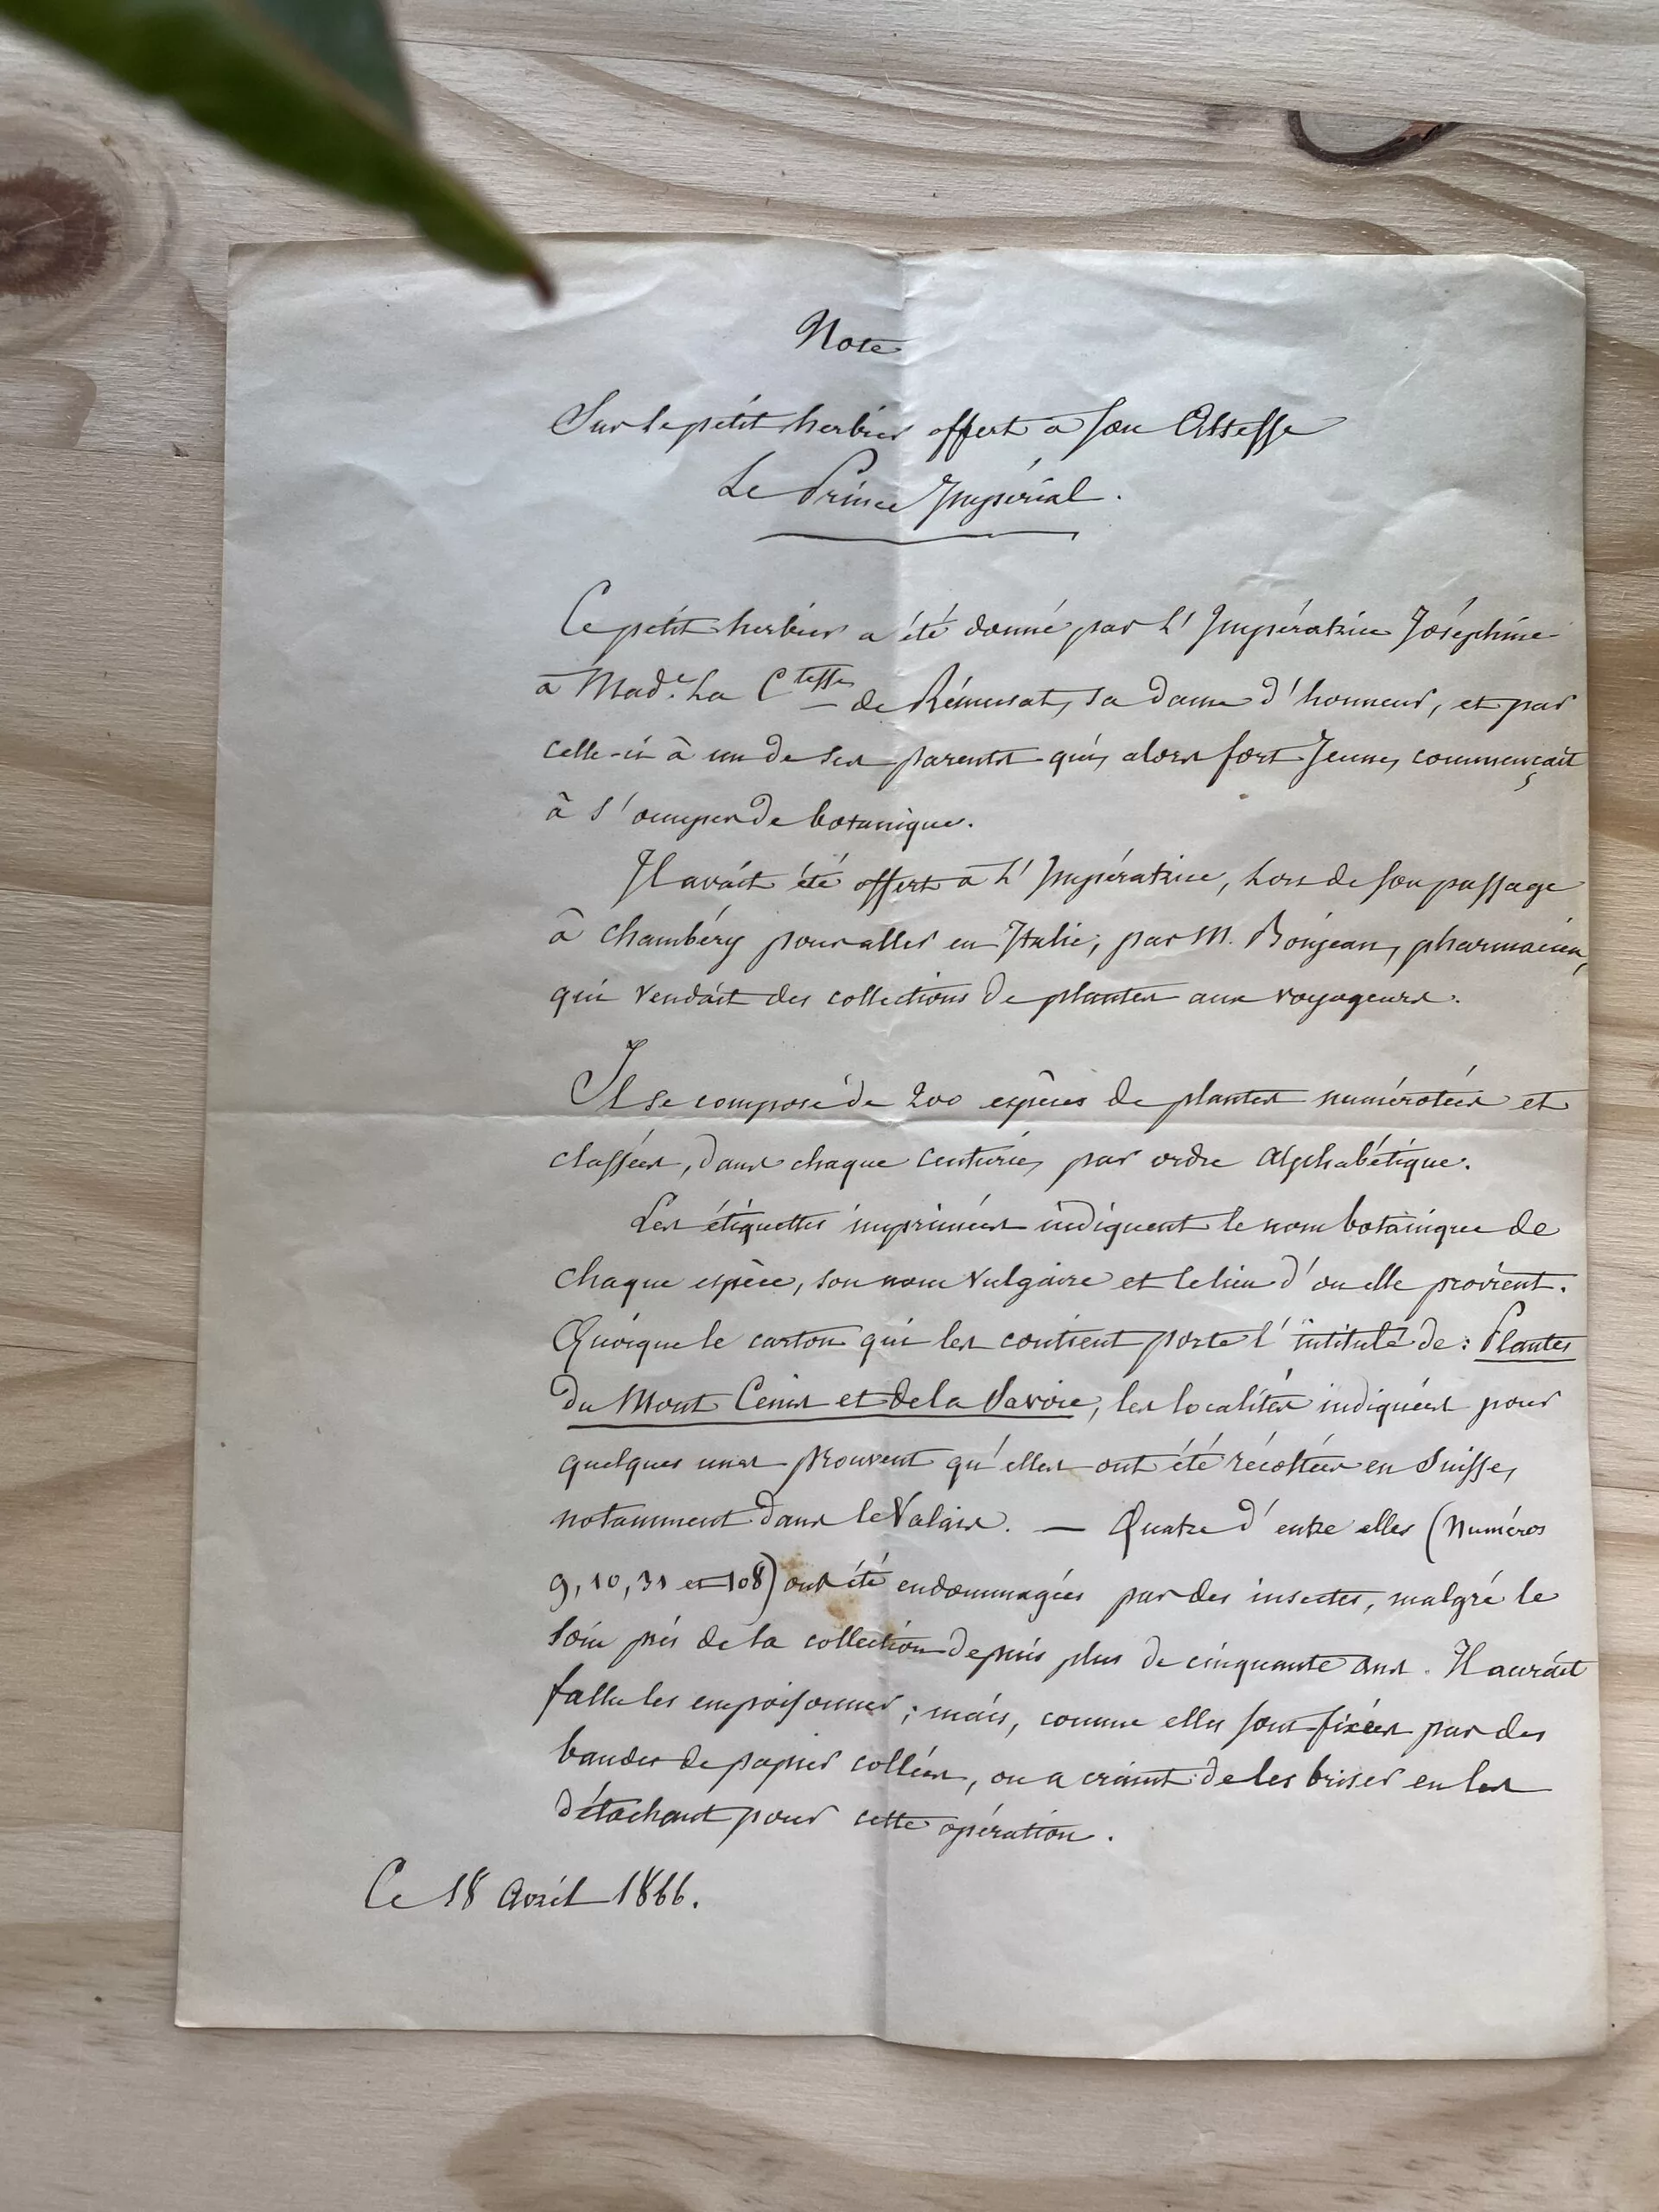 Note
Sur le petit herbier offert a Son Altesse
Le Prince Impérial.
Ce petit herbier a été donné par L'Impératrice Joséphine
à Made. La Ctesse de Rémusat, sa dame d'honneur, et par
celle-ci à un de ses parents qui, alors fort Jeune, commençait
à s'occuper de botanique.
Il avait été offert à L'Impératrice, Lors de Son passage
à Chambéry pour aller en Italie, par M. Bonjean, pharmacien,
qui vendait des collections de plantes aux voyageurs.
Il se compose de 200 espèces de plantes numérotées et
classées, dans chaque centurie, par ordre alphabétique.
Les étiquettes imprimées indiquent le nom botanique de
chaque espèce, son nom vulgaire et le lieu d'ou elle provient.
Quoique le carton qui les contient porte l'intitulé de : Plantes
du Mont Cenis et de la Savoie, les localités indiquées pour
quelques unes prouvent qu'elles ont été récoltées en Suisse,
notamment dans le Valais. — Quatre d'entre elles (Numéros
9, 10, 31 et 108) ont été endommagées par des insectes, malgré le
soin pris de la collection depuis plus de cinquante ans. Il aurait
fallu les empoisonner ; mais, comme elles sont fixées par des
bandes de papier collées, on a craint de les briser en les
détachant pour cette opération.
Ce 18 Avril 1866.